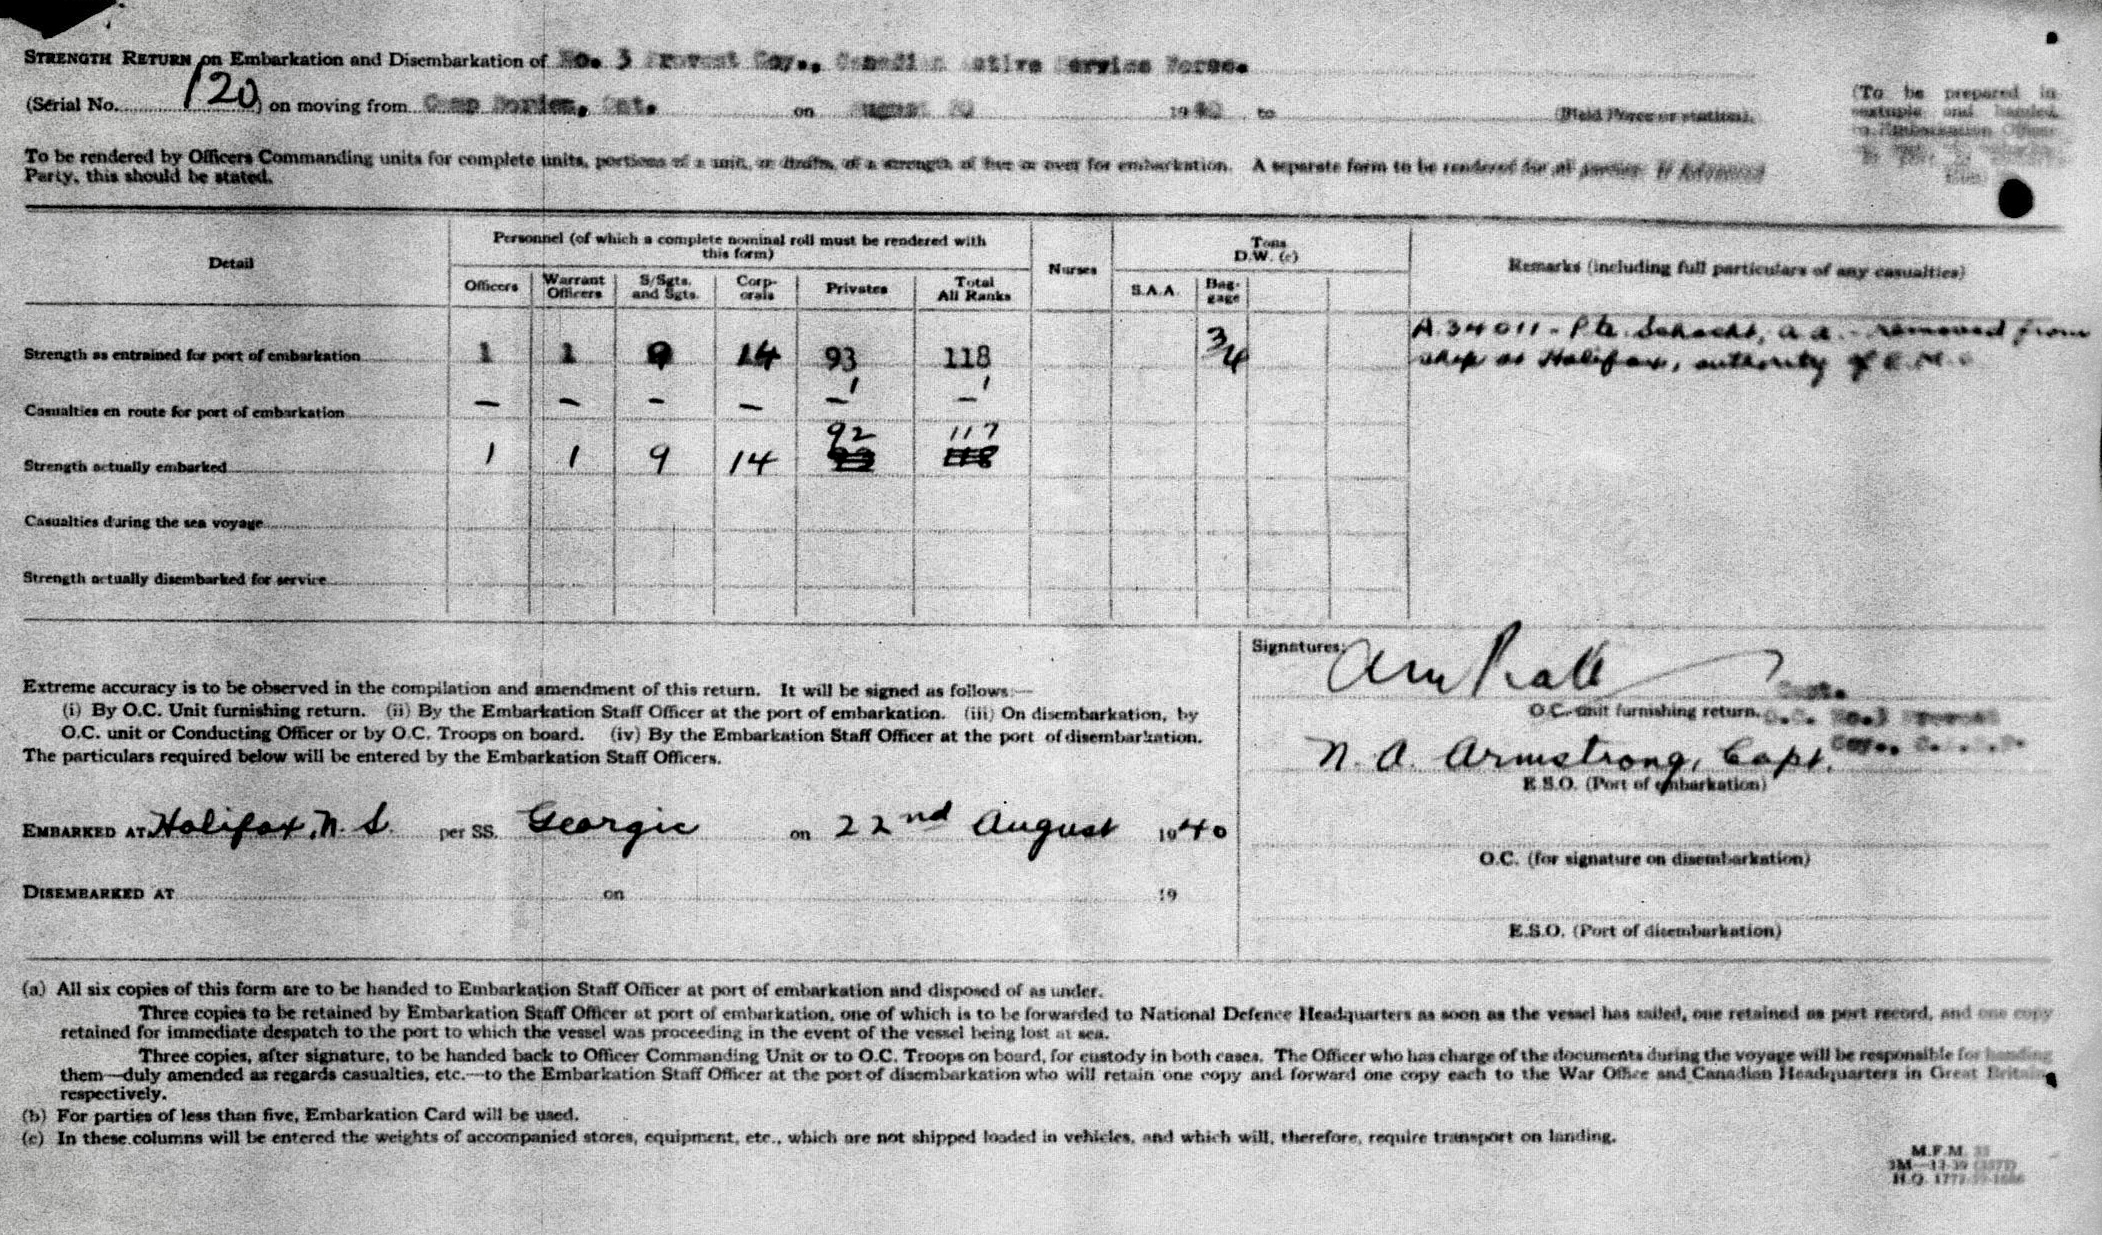 STRENGTH RETURN on Embarkation and Disembarkation of No. 3 Provost Coy., Canadian Active Service Force.
(Serial No. 120) on moving from Camp Borden, Ont. on August 20 1940 to (Field Force or station).
(To be prepared in
sextuple and handed
to Embarkation Officer
To be rendered by Officers Commanding units for complete units, portions of a unit, or drafts, of a strength of five or over for embarkation. A separate form to be rendered for all parties. If Advanced
Party, this should be stated.
Detail
Personnel (of which a complete nominal roll must be rendered with
this form)
Nurses
Tons
D.W. (c)
Remarks (including full particulars of any casualties)
Officers Warrant Officers S/Sgts. and Sgts. Corporals Privates Total All Ranks S.A.A. Baggage
Strength as entrained for port of embarkation 1 1 9 14 93 118 3/4
A.34011 - Pte. Schacht, A.A. - removed from
ship at Halifax, authority of E.M.O.
Casualties en route for port of embarkation — — — — 1 1
92 117
Strength actually embarked 1 1 9 14 93 118
Casualties during the sea voyage
Strength actually disembarked for service
Signatures:
Extreme accuracy is to be observed in the compilation and amendment of this return. It will be signed as follows:—
(i) By O.C. Unit furnishing return. (ii) By the Embarkation Staff Officer at the port of embarkation. (iii) On disembarkation, by
O.C. unit or Conducting Officer or by O.C. Troops on board. (iv) By the Embarkation Staff Officer at the port of disembarkation.
The particulars required below will be entered by the Embarkation Staff Officers.
Capt.
O.C. unit furnishing return. O.C. No.3 Provost
Coy., C.A.S.F.
N. A. Armstrong, Capt.
E.S.O. (Port of embarkation)
EMBARKED AT Halifax, N.S. per SS. Georgic on 22nd August 1940
O.C. (for signature on disembarkation)
DISEMBARKED AT on 19
E.S.O. (Port of disembarkation)
(a) All six copies of this form are to be handed to Embarkation Staff Officer at port of embarkation and disposed of as under.
Three copies to be retained by Embarkation Staff Officer at port of embarkation, one of which is to be forwarded to National Defence Headquarters as soon as the vessel has sailed, one retained as port record, and one copy
retained for immediate despatch to the port to which the vessel was proceeding in the event of the vessel being lost at sea.
Three copies, after signature, to be handed back to Officer Commanding Unit or to O.C. Troops on board, for custody in both cases. The Officer who has charge of the documents during the voyage will be responsible for handing
them—duly amended as regards casualties, etc.—to the Embarkation Staff Officer at the port of disembarkation who will retain one copy and forward one copy each to the War Office and Canadian Headquarters in Great Britain
respectively.
(b) For parties of less than five, Embarkation Card will be used.
(c) In these columns will be entered the weights of accompanied stores, equipment, etc., which are not shipped loaded in vehicles, and which will, therefore, require transport on landing.
M.F.M.
H.Q.